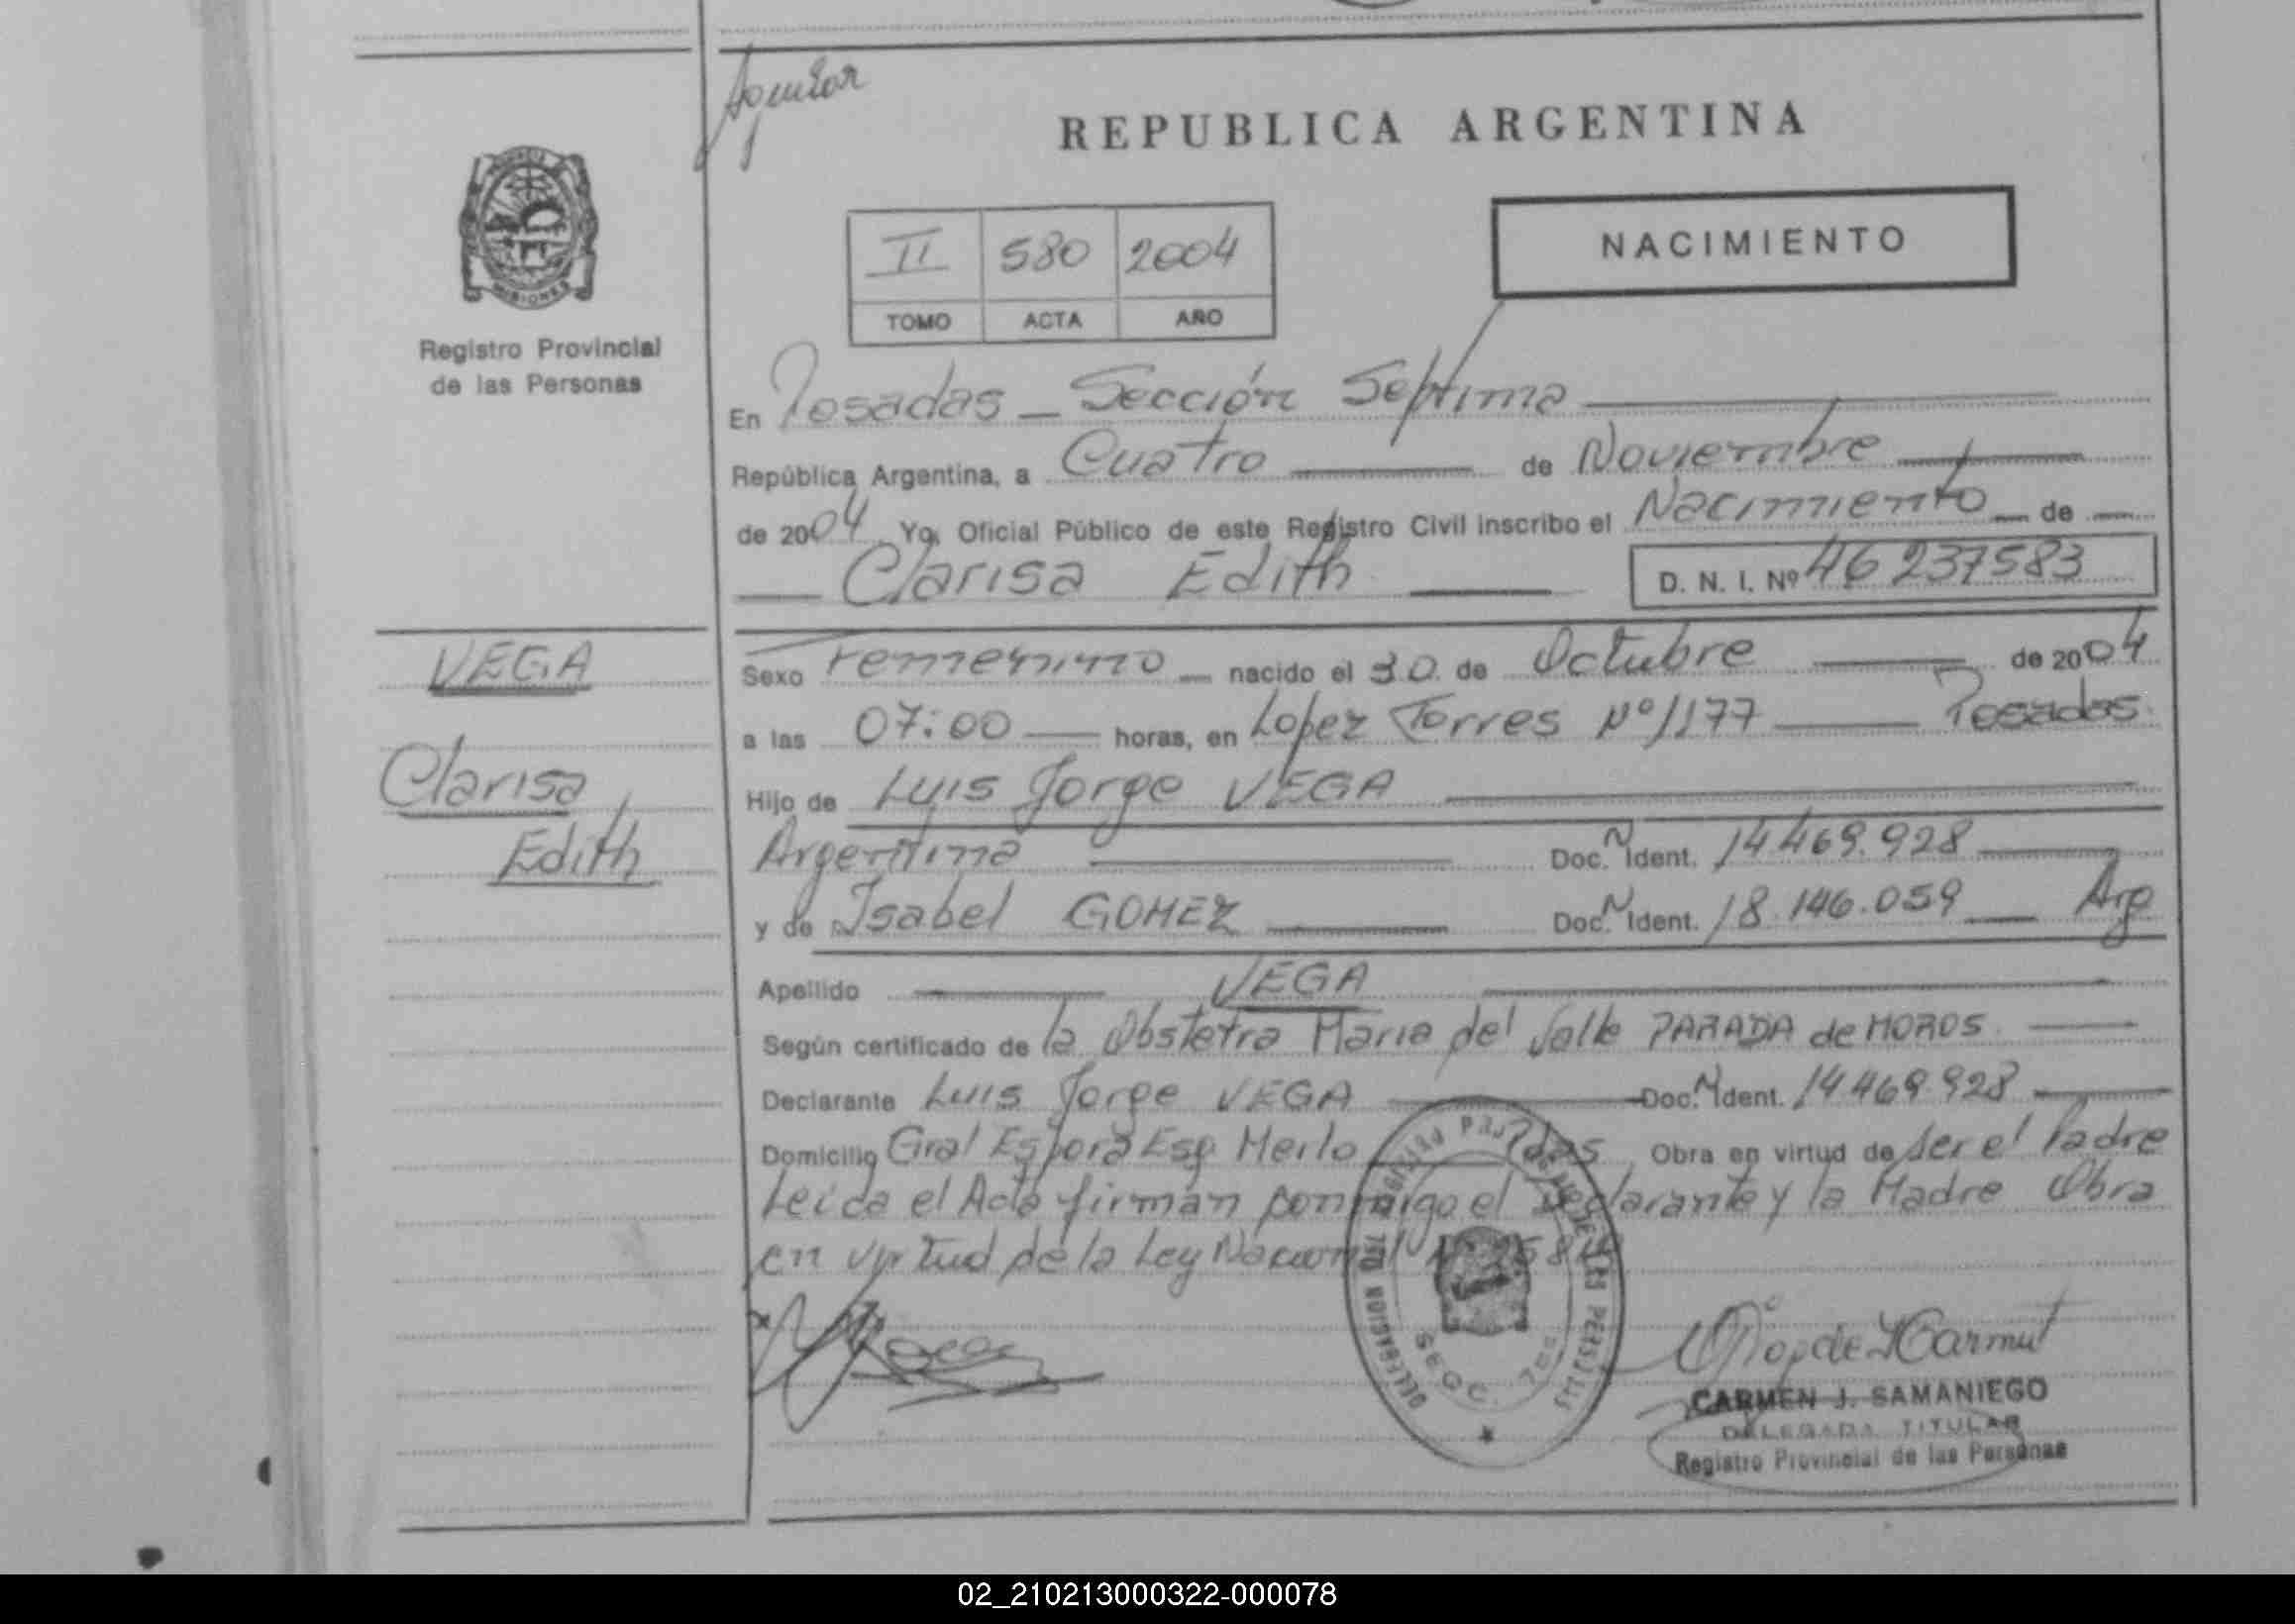 REPUBLICA ARGENTINA
MISIONES
Registro Provincial
de las Personas
NACIMIENTO
II 580 2004
TOMO ACTA AÑO
En Posadas - Sección Septima
República Argentina, a Cuatro de Noviembre
de 2004. Yo, Oficial Público de este Registro Civil inscribo el Nacimiento de
Clarisa Edith D. N. I. Nº 46 237583
VEGA
Clarisa
Edith
Sexo Femenino nacido el 30 de Octubre de 2004
a las 07:00 horas, en Lopez Torres Nº 1177 Posadas
Hijo de Luis Jorge VEGA
Argentina Doc. Ident. 14 469.928
y de Isabel GOMEZ Doc. Ident. 18.146.059 Arg
Apellido VEGA
Según certificado de la Obstetra Maria del Valle PARADA de MOROS
Declarante Luis Jorge VEGA Doc. Ident. 14 469.928
Domicilio Gral Espora Esq Merlo Pdas Obra en virtud de ser el Padre
Leida el Acta firman conmigo el Declarante y la Madre Obra
en virtud de la Ley Nacional
CARMEN J. SAMANIEGO
DELEGADA TITULAR
Registro Provincial de las Personas
02_210213000322-000078